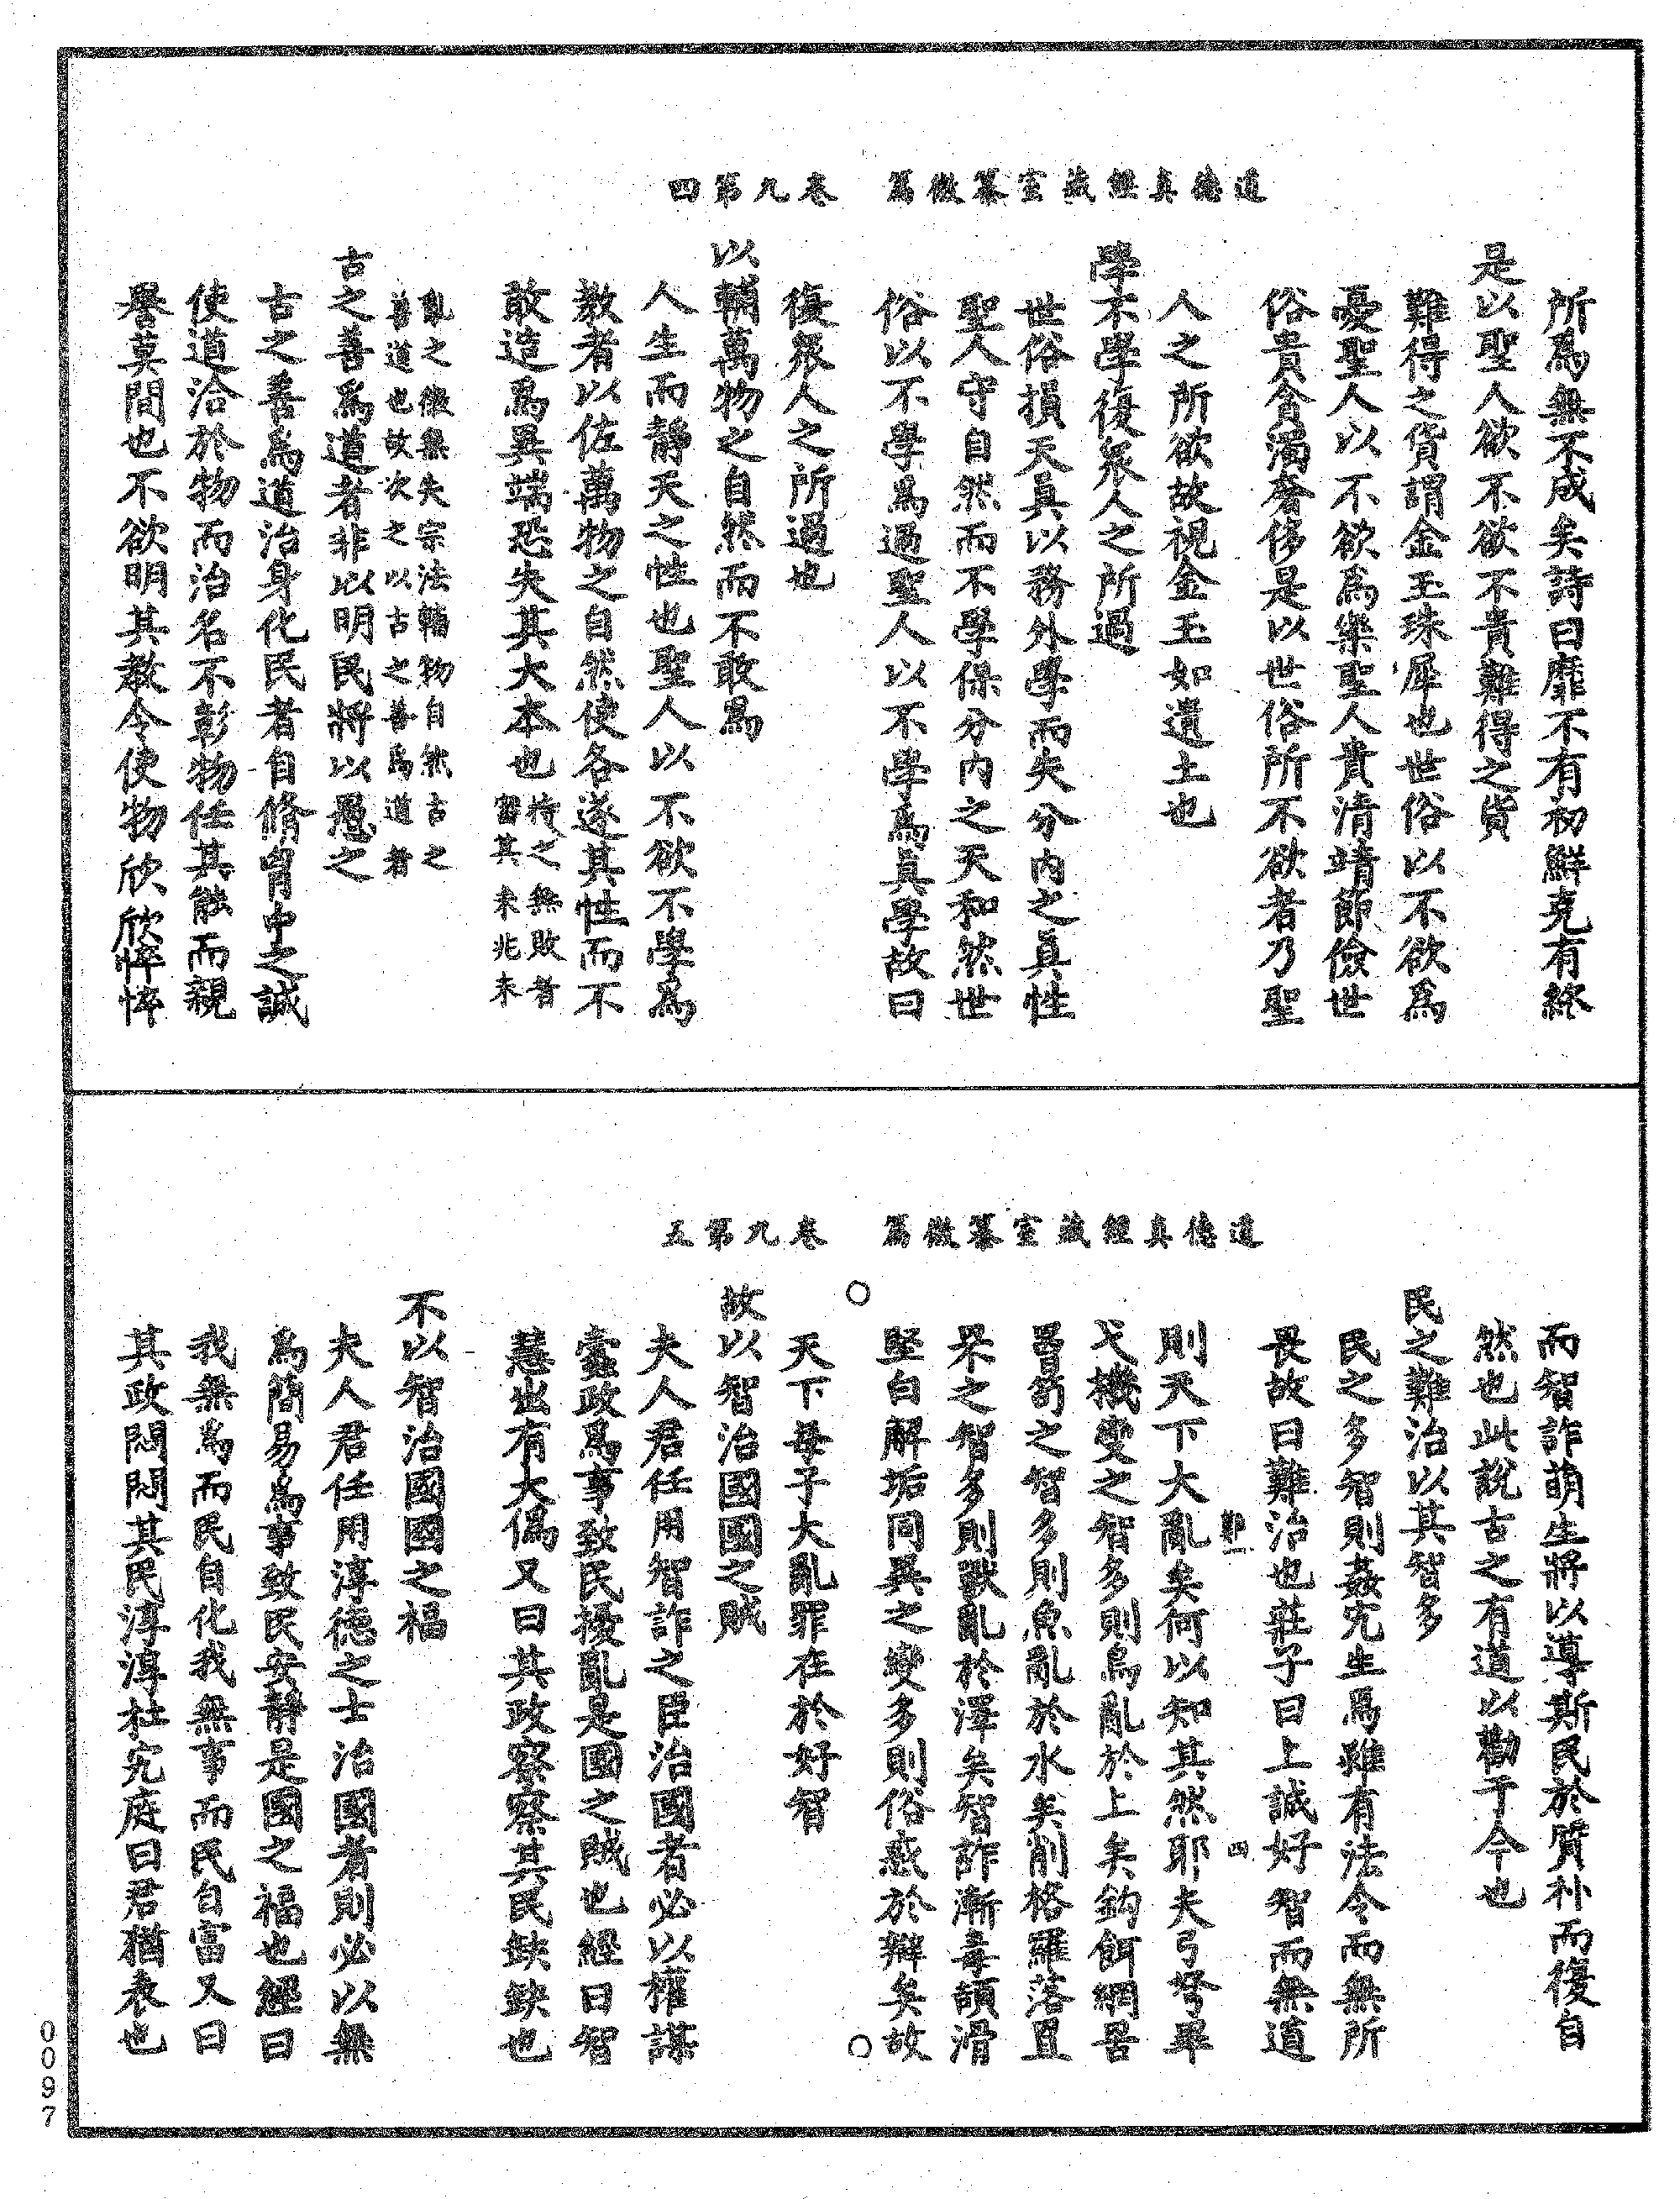 道德真經藏室纂微篇　卷九第四
所爲無不成矣詩曰靡不有初鮮克有終
是以聖人欲不欲不貴難得之貨
難得之貨謂金玉珠犀也世俗以不欲爲
憂聖人以不欲爲樂聖人貴清靖節儉世
俗貴貪濁奢侈是以世俗所不欲者乃聖
人之所欲故視金玉如遺土也
學不學復衆人之所過
世俗損天真以務外學而失分內之真性
聖人守自然而不學保分內之天和然世
俗以不學爲過聖人以不學爲真學故曰
復衆人之所過也
以輔萬物之自然而不敢爲
人生而靜天之性也聖人以不欲不學爲
教者以佐萬物之自然使各遂其性而不
敢造爲異端恐失其大本也持之無敗者審其未兆未
亂之徵無失宗法輔物自然古之
善道也故次之以古之善爲道者
古之善爲道者非以明民將以愚之
古之善爲道治身化民者自脩胷中之誠
使道洽於物而治名不彰物任其能而親
譽莫間也不欲明其教令使物欣欣悴悴
道德真經藏室纂微篇　卷九第五
而智詐萌生將以導斯民於質朴而復自
然也此說古之有道以勸于今也
民之難治以其智多
民之多智則姦宄生焉雖有法令而無所
畏故曰難治也莊子曰上誠好智而無道
則天下大亂矣何以知其然耶夫弓弩畢
弋機變之智多則鳥亂於上矣鈎餌網罟
罾笱之智多則魚亂於水矣削格羅落罝
罘之智多則獸亂於澤矣智詐漸毒頡滑
堅白解垢同異之變多則俗惑於辯矣故
天下每于大亂罪在於好智
故以智治國國之賊
夫人君任用智詐之臣治國者必以權謀
蠹政爲事致民擾亂是國之賊也經曰智
慧出有大僞又曰其政察察其民缺缺也
不以智治國國之福
夫人君任用淳德之士治國者則必以無
爲簡易爲事致民安靜是國之福也經曰
我無爲而民自化我無事而民自富又曰
其政悶悶其民淳淳杜宄庭曰君猶表也
0097